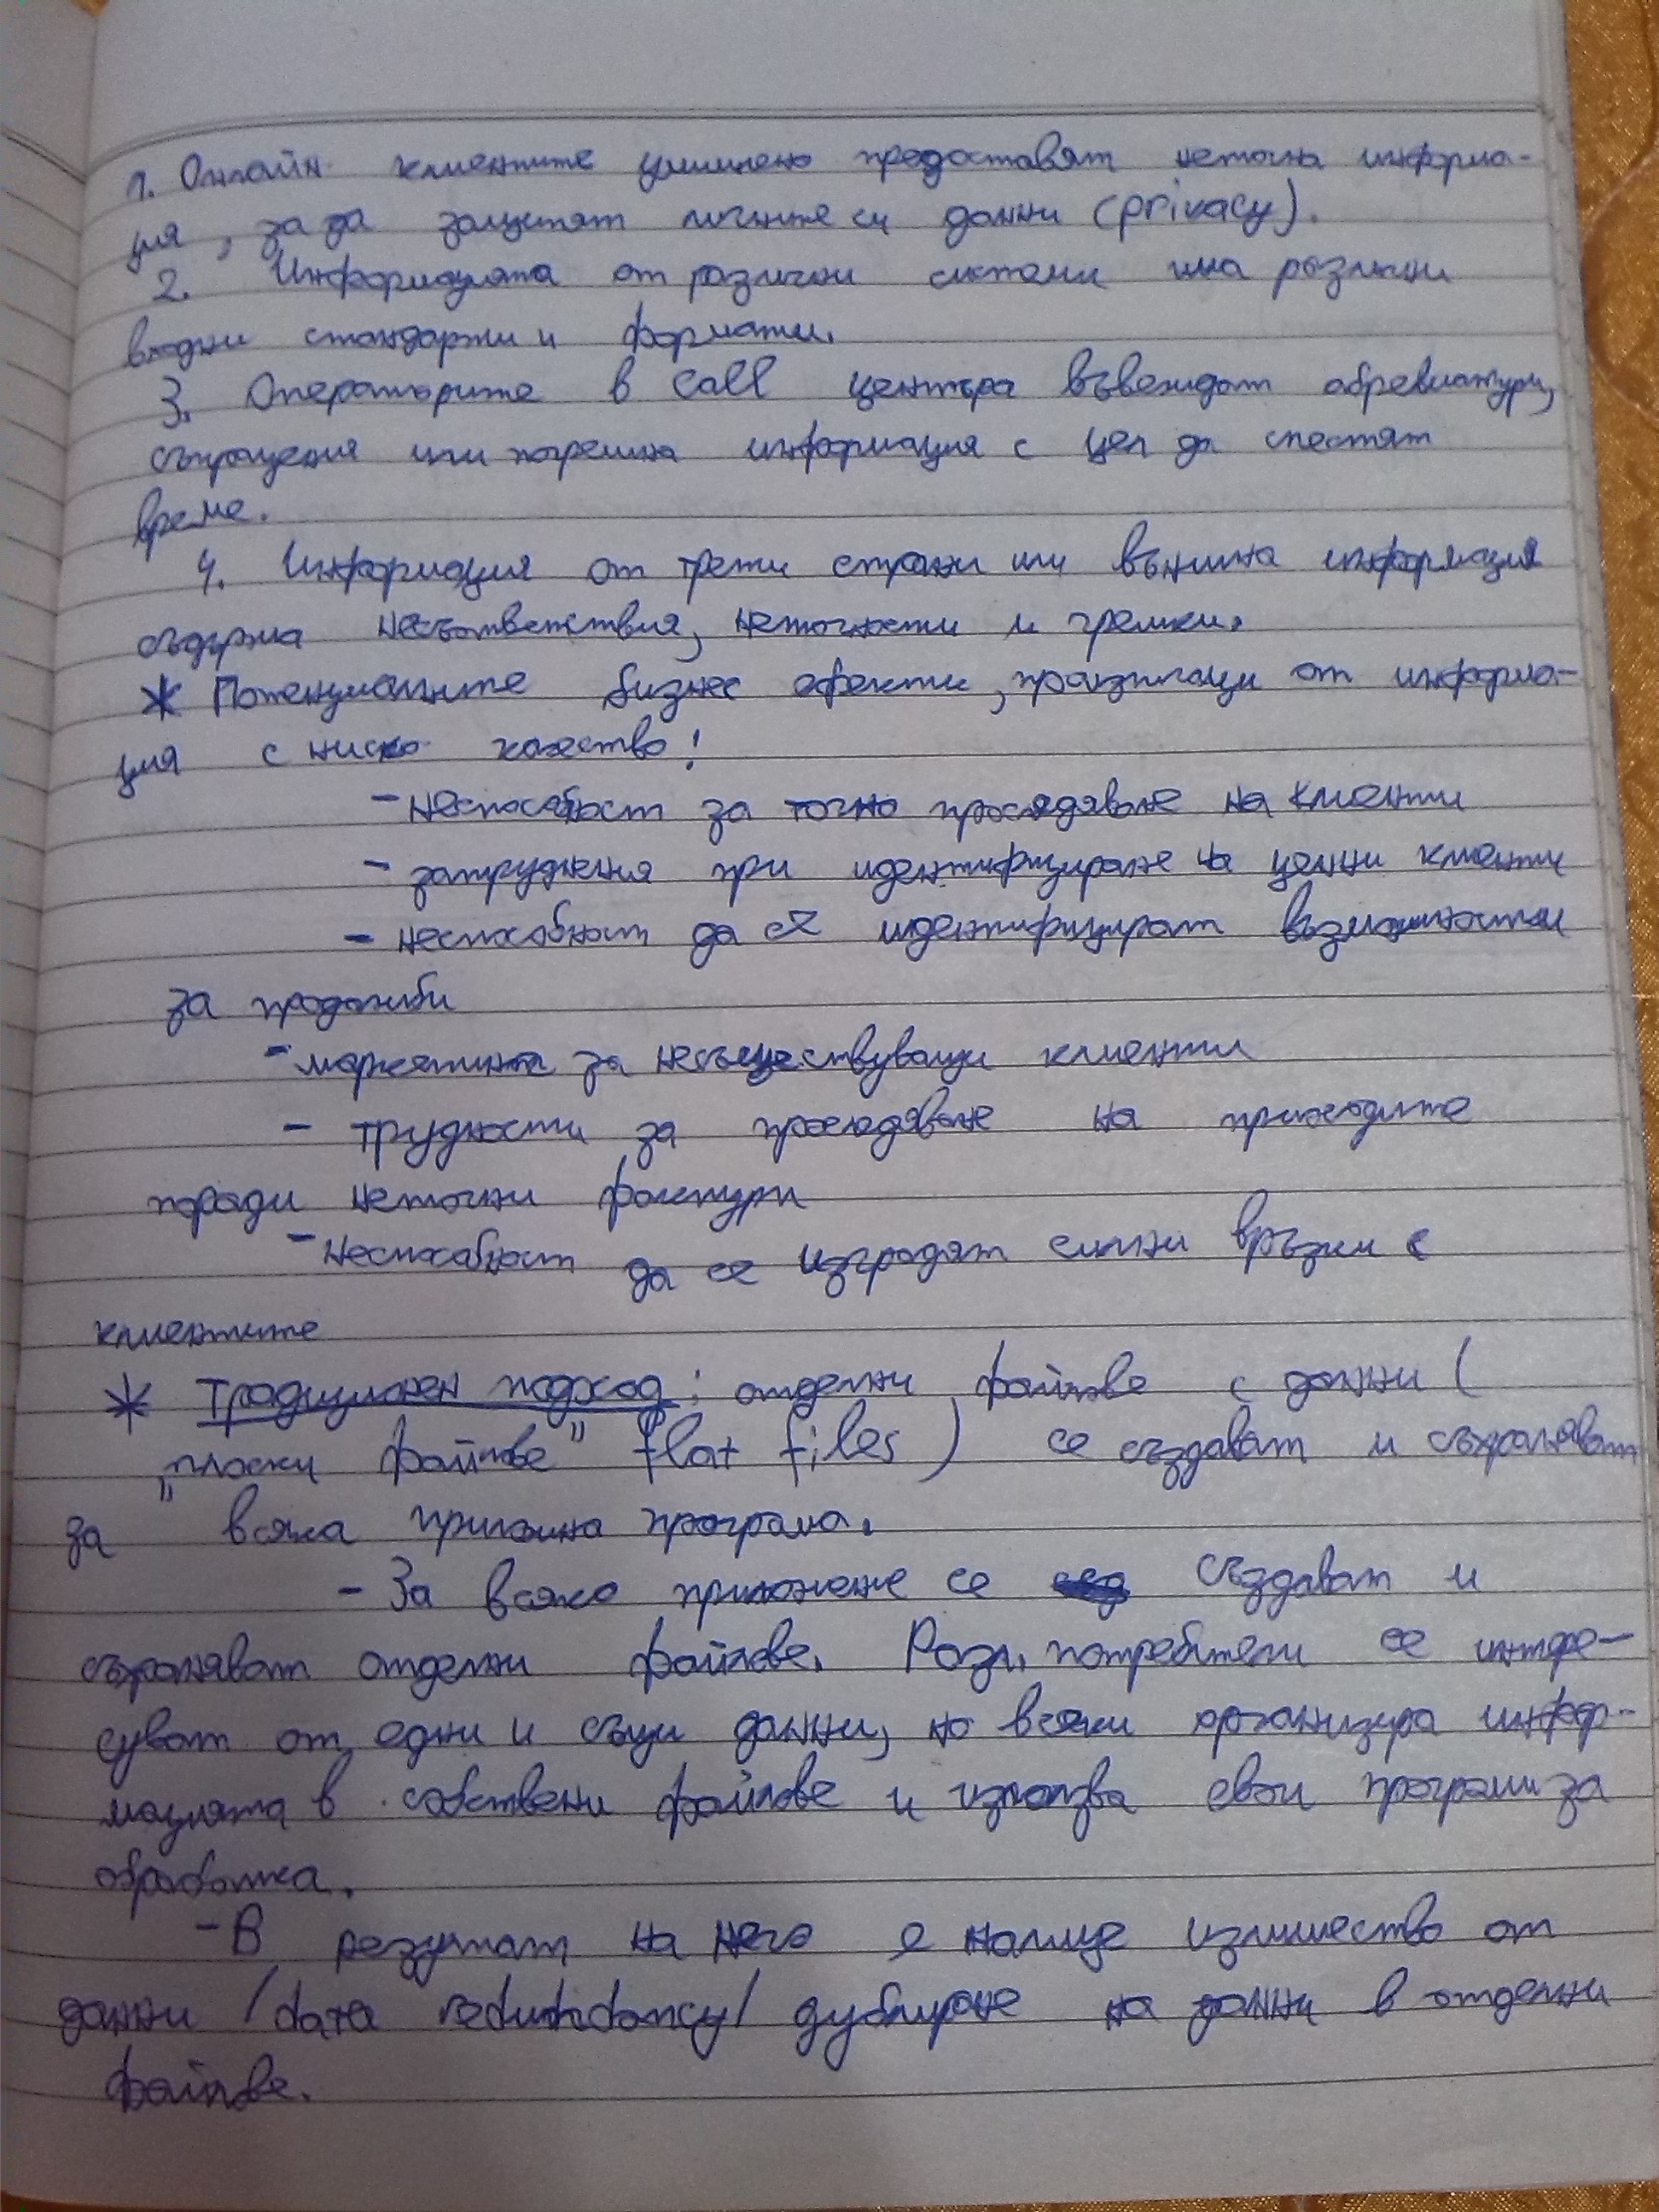 1. Онлайн клиентите умишлено предоставят неточна информа-
ция, за да защитят личните си данни (privacy).
2. Информацията от различни системи има различни
входни стандарти и формати.
3. Операторите в call центъра въвеждат абревиатури,
съкращения или погрешна информация с цел да спестят
време.
4. Информация от трети страни или външна информация
съдържа несъответствия, неточности и грешки.
* Потенциалните бизнес ефекти, произтичащи от информа-
ция с ниско качество!
- неспособност за точно проследяване на клиенти
- затруднения при идентифициране на ценни клиенти
- неспособност да се идентифицират възможности
за продажби
- маркетинг за несъществуващи клиенти
- трудности за проследяване на приходите
поради неточни фактури
- неспособност да се изградят силни връзки с
клиентите
* Традиционен подход: отделни файлове с данни (
„плоски файлове" flat files) се създават и съхраняват
за всяка приложна програма.
- За всяко приложение се създават и
съхраняват отделни файлове. Разл. потребители се интере-
суват от едни и същи данни, но всеки организира инфор-
мацията в собствени файлове и използва свои програми за
обработка.
- В резултат на него е налице излишество от
данни /data redundancy/ дублиране на данни в отделни
файлове.